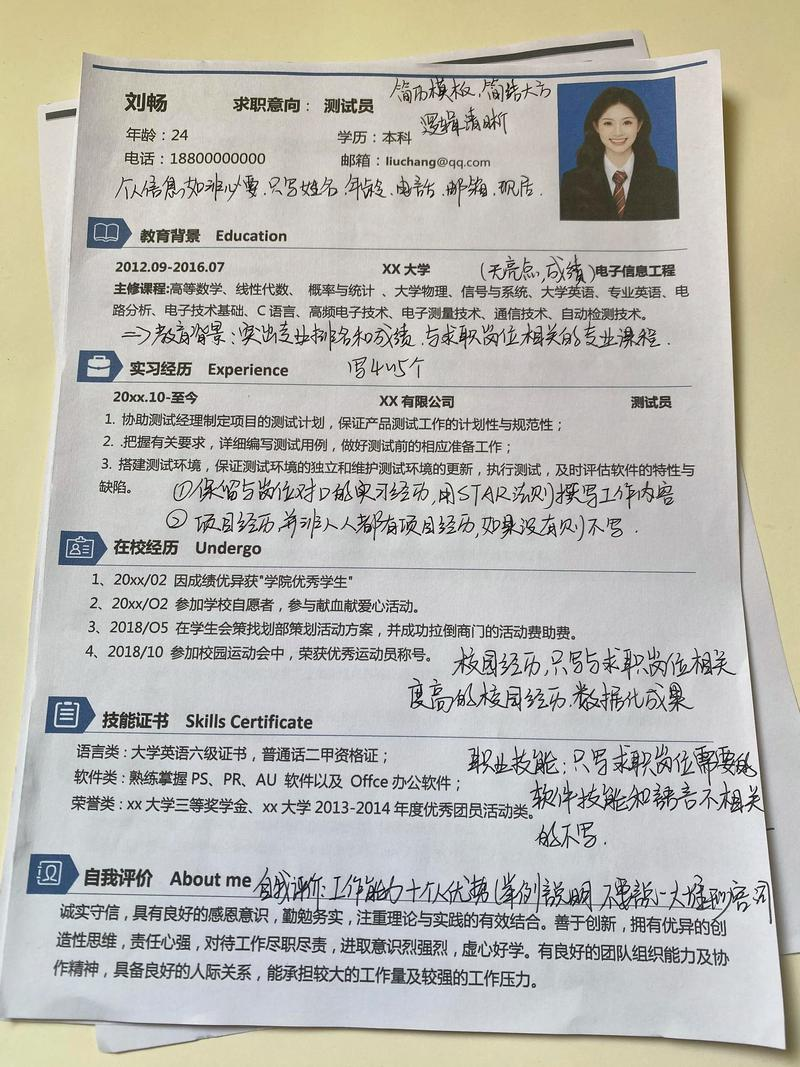 刘畅 求职意向： 测试员 简历模板，简结大方
逻辑清晰
年龄：24 学历：本科
电话：18800000000 邮箱：liuchang@qq.com
个人信息，如非必要，只写姓名、年龄、电话、邮箱、现居.
教育背景 Education
2012.09-2016.07 XX 大学 (无亮点,成绩) 电子信息工程
主修课程:高等数学、线性代数、 概率与统计 、大学物理、信号与系统、大学英语、专业英语、电
路分析、电子技术基础、C 语言、高频电子技术、电子测量技术、通信技术、自动检测技术。
=>教育背景：突出专业排名和成绩，与求职岗位相关的专业课程.
写4~5个
实习经历 Experience
20xx.10-至今 XX 有限公司 测试员
1. 协助测试经理制定项目的测试计划，保证产品测试工作的计划性与规范性；
2. .把握有关要求，详细编写测试用例，做好测试前的相应准备工作；
3. 搭建测试环境，保证测试环境的独立和维护测试环境的更新，执行测试，及时评估软件的特性与
缺陷。 ①保留与岗位对口的实习经历，用STAR法则撰写工作内容
② 项目经历，并非人人都有项目经历，如果没有则不写.
在校经历 Undergo
1、20xx/02 因成绩优异获"学院优秀学生"
2、20xx/O2 参加学校自愿者，参与献血献爱心活动。
3、2018/O5 在学生会策找划部策划活动方案，并成功拉倒商门的活动费助费。
4、2018/10 参加校园运动会中，荣获优秀运动员称号。 校园经历，只写与求职岗位相关
度高的校园经历、数据化成果
技能证书 Skills Certificate
语言类：大学英语六级证书，普通话二甲资格证； 职业技能：只写求职岗位需要的
软件类：熟练掌握 PS、PR、AU 软件以及 Offce 办公软件； 软件技能和語言不相关
荣誉类：xx 大学三等奖学金、xx 大学 2013-2014 年度优秀团员活动类。
的不写.
自我评价 About me 自我评价：工作能力+个人优势(举例說明，不要說一大堆形容词
诚实守信，具有良好的感恩意识，勤勉务实，注重理论与实践的有效结合。善于创新，拥有优异的创
造性思维，责任心强，对待工作尽职尽责，进取意识烈强烈，虚心好学。有良好的团队组织能力及协
作精神，具备良好的人际关系，能承担较大的工作量及较强的工作压力。